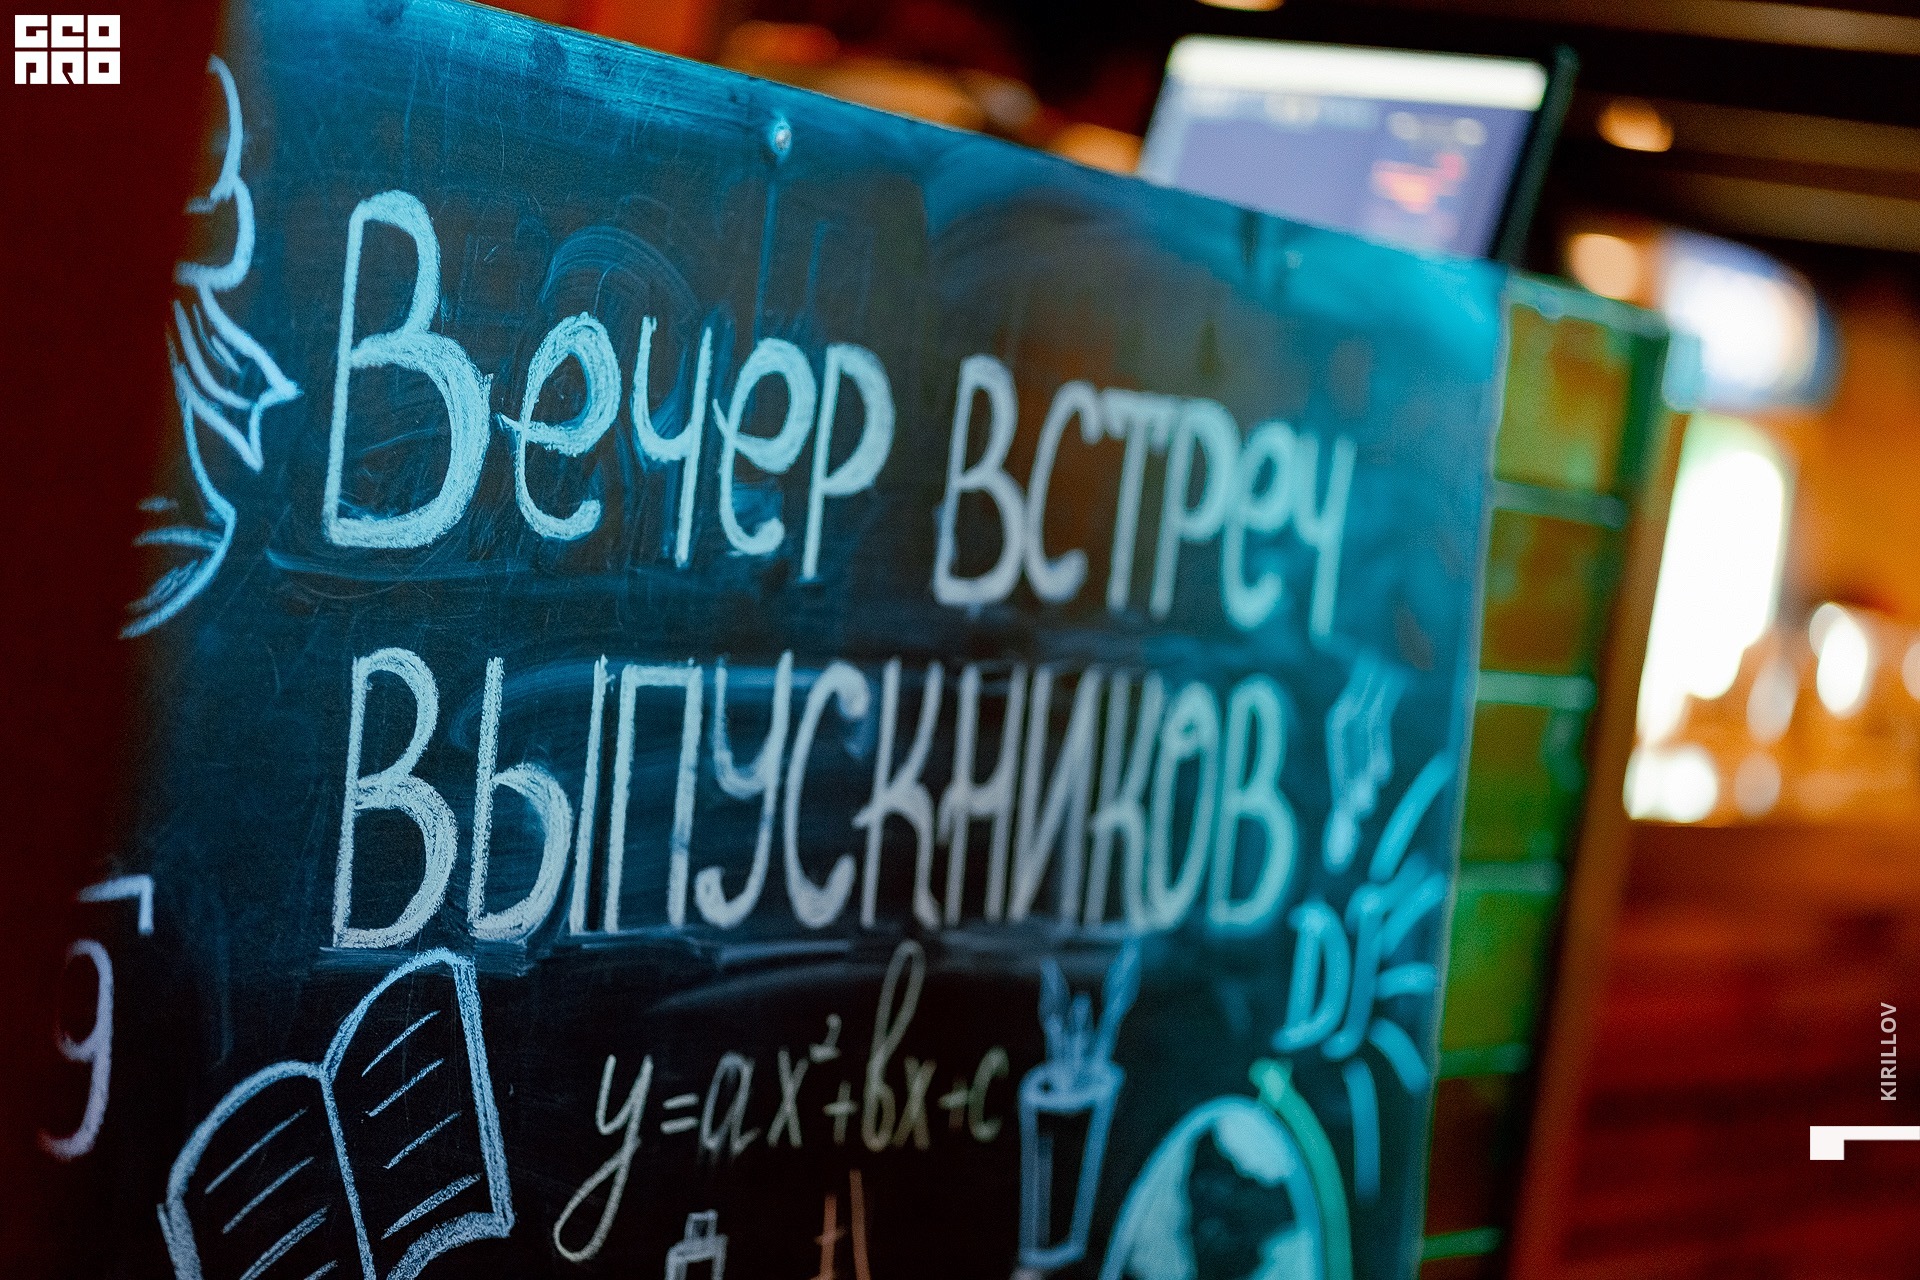 GEO
PRO
Вечер встреч
выпускников
DJ
9
y=ax²+bx+c
KIRILLOV